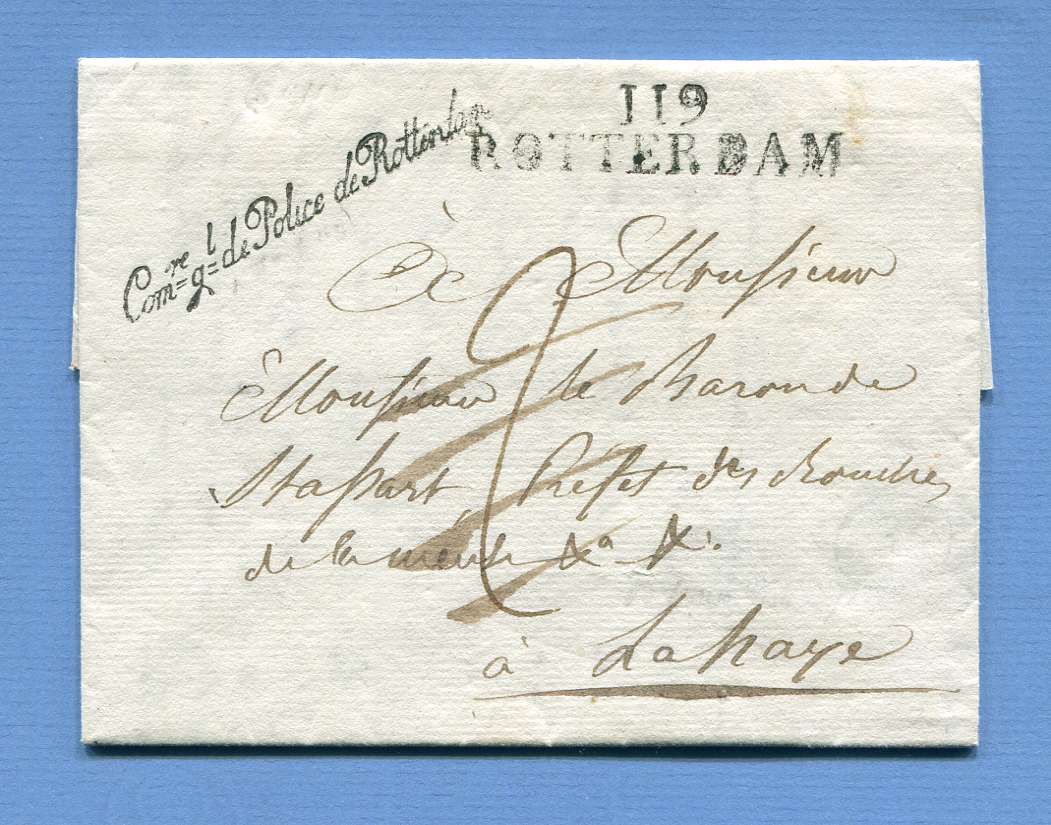 119
ROTTERDAM
Com.re g.l de Police de Rotterdam
à Monsieur
Monsieur le Baron de
Stassart Préfet des Bouches
de la meuse &a &.
à La haye